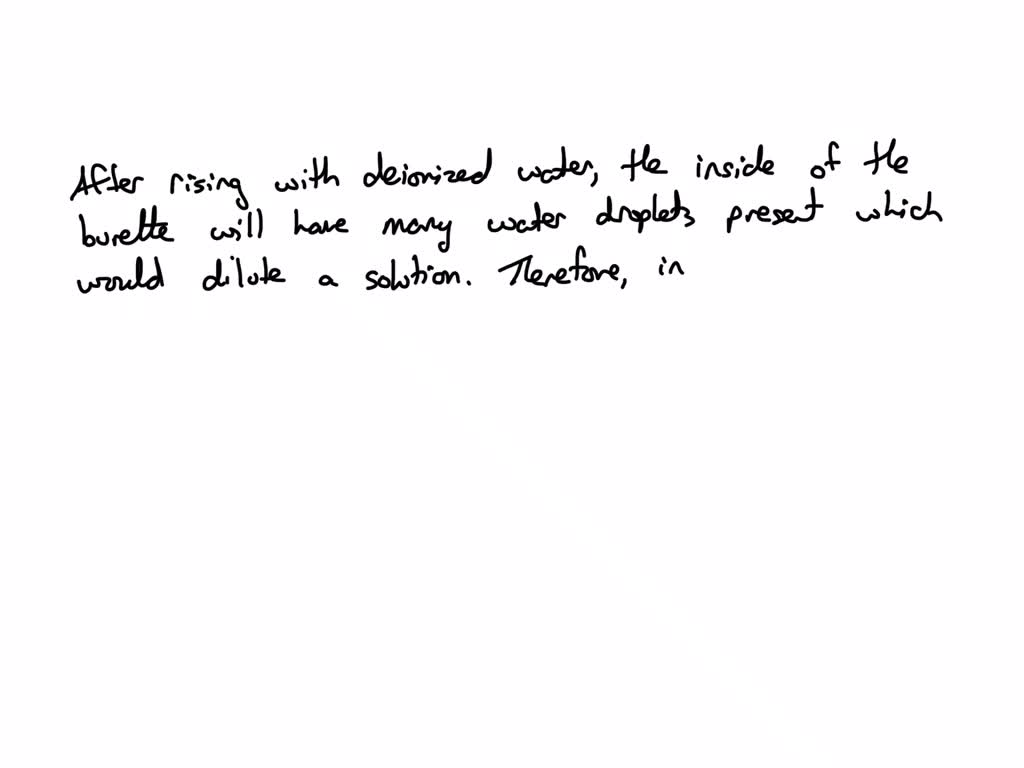 After rising with deionized water, the inside of the
burette will have many water droplets present which
would dilute a solution. Therefore, in